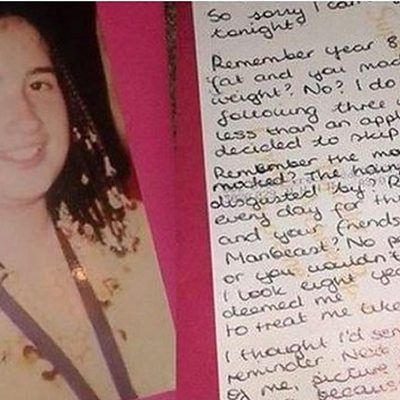 So sorry I can
tonight?
Remember year 8
fat and you mad
weight? No? I do
following three w
less than an appl
decided to skip
Remember the mo
mocked? The hairy
disgusted by? R
every day for th
and your friends
Manbeast? No pe
or you wouldn't
I look eight yea
deemed me
to treat me like
I thought I'd sen
reminder. Next
of me, picture
because